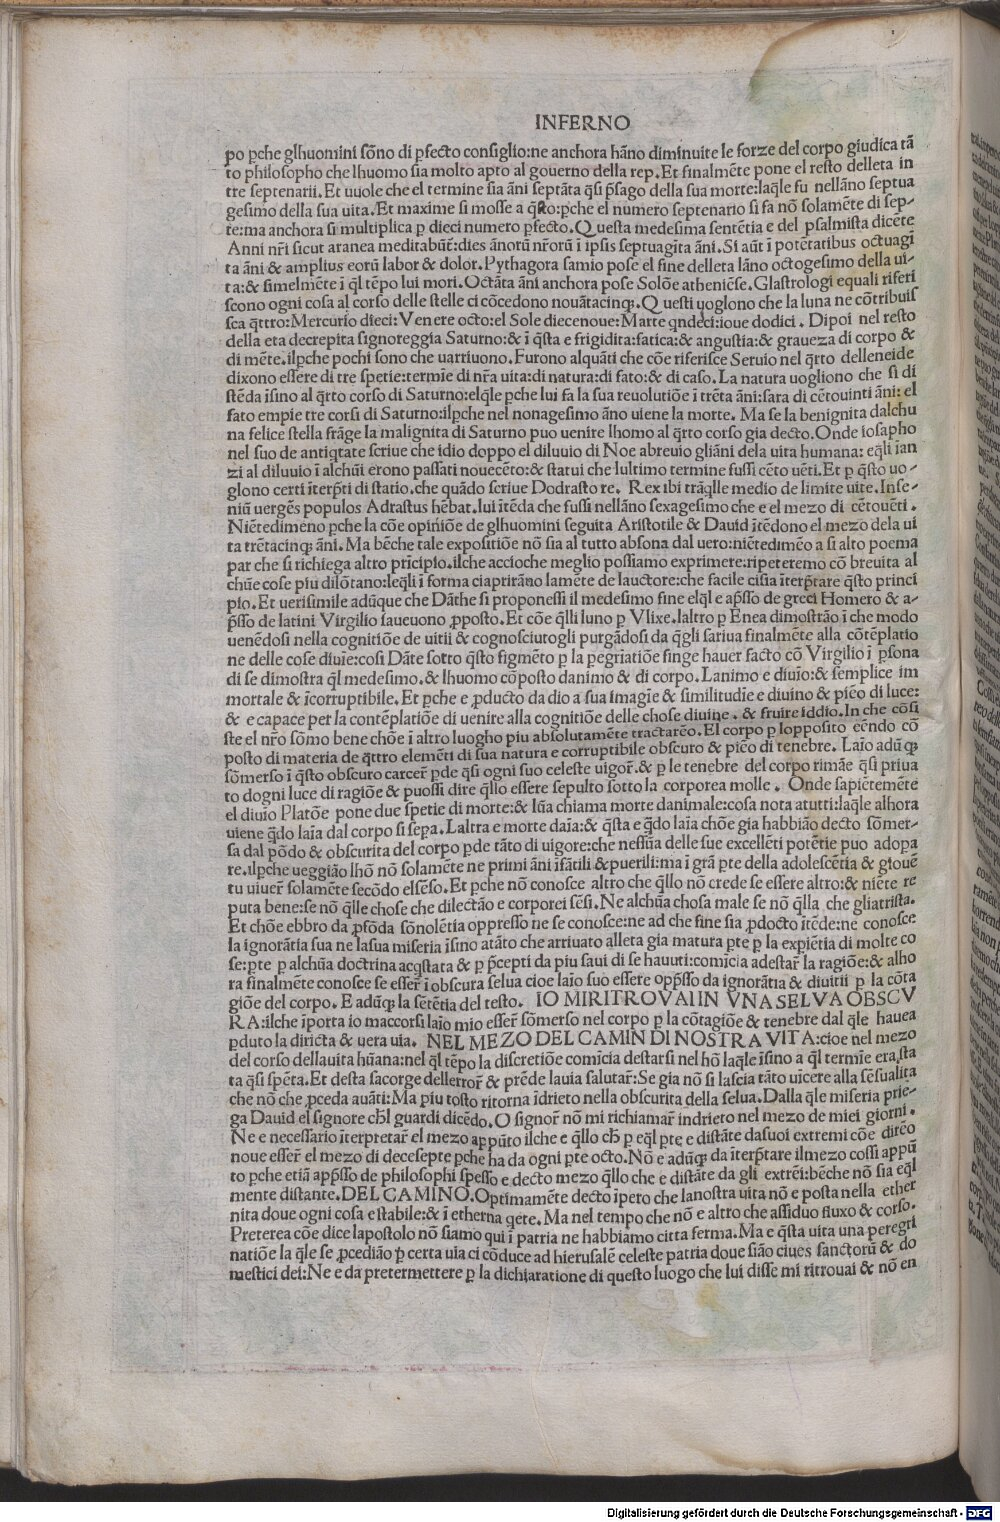 INFERNO
po pche glhuomini sõno di pfecto consiglio:ne anchora hãno diminuite le forze del corpo giudica tã
to philosopho che lhuomo sia molto apto al gouerno della rep.Et finalmẽte pone el resto delleta in
tre septenarii.Et uuole che el termine sia ãni septãta q̃si p̃sago della sua morte:laq̃le fu nellãno septua
gesimo della sua uita.Et maxime si mosse a q̃sto:pche el numero septenario si fa nõ solamẽte di sep-
te:ma anchora si multiplica p dieci numero pfecto.Questa medesima sentẽtia e del psalmista dicẽte
Anni nr̃i sicut aranea meditabũt̃:dies ãnorũ nr̃orũ ĩ ipsis septuagĩta ãni.Si aũt ĩ potẽtatibus octuagĩ
ta ãni & amplius eorũ labor & dolor.Pythagora samio pose el fine delleta lãno octogesimo della ui-
ta:& similmẽte ĩ q̃l tẽpo lui mori.Octãta ãni anchora pose Solõe atheniẽse.Glastrologi equali riferi
scono ogni cosa al corso delle stelle ci cõcedono nouãtacinq̃.Questi uogliono che la luna ne cõtribuis
sca q̃ttro:Mercurio dieci:Venere octo:el Sole diecenoue:Marte q̃ndeci:ioue dodici. Dipoi nel resto
della eta decrepita signoreggia Saturno:& ĩ q̃sta e frigidita:fatica:& angustia:& graueza di corpo &
di mẽte.ilpche pochi sono che uarriuono.Furono alquãti che cõe riferisce Seruio nel q̃rto delleneide
dixono essere di tre spetie:termĩe di nr̃a uita:di natura:di fato:& di caso.La natura uogliono che si di
stẽda ĩsino al q̃rto corso di Saturno:elq̃le pche lui fa la sua reuolutiõe ĩ trẽta ãni:sara di cẽtouinti ãni: el
fato empie tre corsi di Saturno:ilpche nel nonagesimo ãno uiene la morte. Ma se la benignita dalchu
na felice stella frãge la malignita di Saturno puo uenire lhomo al q̃rto corso gia decto.Onde iosapho
nel suo de antiq̃tate scriue che idio doppo el diluuio di Noe abreuio gliãni dela uita humana: eq̃li ĩan
zi al diluuio ĩ alchũi erono passati nouecẽto:& statui che lultimo termine fussi cẽto uẽti.Et p q̃sto uo-
glono certi ĩterp̃ti di statio.che quãdo scriue Dodrasto re. Rex ibi trãq̃lle medio de limite uite.Inse-
niũ uergẽs populos Adrastus hẽbat.lui ĩtẽda che fussi nellãno sexagesimo che e el mezo di cẽtouẽti.
Niẽtedimeno pche la cõe opiniõe de glhuomini seguita Aristotile & Dauid ĩtẽdono el mezo dela ui
ta trẽtacinq̃ ãni.Ma bẽche tale expositiõe nõ sia al tutto absona dal uero:niẽtedimẽo a si alto poema
par che si richiega altro prĩcipio.ilche accioche meglio possiamo exprimere:ripeteremo cõ breuita al
chũe cose piu dilõtano:leq̃li ĩ forma ciaprirãno lamẽte de lauctore:che facile cisia ĩterp̃tare q̃sto princi
pio.Et uerisimile adũque che Dãthe si proponessi il medesimo fine elq̃l e ap̃sso de greci Homero & a-
p̃sso de latini Virgilio saueuono ꝓposto.Et cõe q̃lli luno p Vlixe.laltro p Enea dimostrão ĩ che modo
uenẽdosi nella cognitiõe de uitii & cognosciutogli purgãdosi da q̃gli sariua finalmẽte alla cõtẽplatio
ne delle cose diuĩe:cosi Dãte sotto q̃sto figmẽto p la pegriatiõe finge hauer facto cõ Virgilio ĩ p̃sona
di se dimostra q̃l medesimo.& lhuomo cõposto danimo & di corpo.Lanimo e diuĩo:& semplice im
mortale & ĩcorruptibile. Et pche e ꝓducto da dio a sua imagĩe & similitudĩe e diuino & piẽo di luce:
& e capace per la contẽplatiõe di uenire alla cognitiõe delle chose diuine.& fruire iddio.In che cõsi
ste el nr̃o sõmo bene chõe ĩ altro luogho piu absolutamẽte tractarẽo.El corpo p lopposito eẽndo cõ
posto di materia de q̃ttro elemẽti di sua natura e corruptibile obscuro & piẽo di tenebre. Laĩo adũq̃
sõmerso ĩ q̃sto obscuro carcer̃ pde q̃si ogni suo celeste uigor̃.& p le tenebre del corpo rimãe q̃si priua
to dogni luce di ragiõe & puossi dire q̃llo essere sepulto sotto la corporea molle. Onde sapiẽtemẽte
el diuĩo Platõe pone due spetie di morte:& lũa chiama morte danimale:cosa nota atutti:laq̃le alhora
uiene q̃do laĩa dal corpo si sepa.Laltra e morte daĩa:& q̃sta e q̃do laĩa chõe gia habbião decto sõmer-
sa dal põdo & obscurita del corpo pde tãto di uigore:che nessũa delle sue excellẽti potẽtie puo adopa
re.ilpche ueggião lhõ nõ solamẽte ne primi ãni ĩfãtili & puerili:ma ĩ grã pte della adolescẽtia & giouẽ
tu uiuer̃ solamẽte secõdo elsẽso.Et pche nõ conosce altro che q̃llo nõ crede se essere altro:& niẽte re
puta bene:se nõ q̃lle chose che dilectão e corporei sẽsi.Ne alchũa chosa male se nõ q̃lla che gliatrista.
Et chõe ebbro da ꝓfõda sõnolẽtia oppresso ne se conosce:ne ad che fine sia ꝓdocto ĩtẽde:ne conosce
la ignorãtia sua ne lasua miseria ĩsino atãto che arriuato alleta gia matura pte p la expiẽtia di molte co
se:pte p alchũa doctrina acq̃stata & p p̃cepti da piu saui di se hauuti:comĩcia adestar̃ la ragiõe:& alho
ra finalmẽte conosce se esser̃ ĩ obscura selua cioe laĩo suo essere opp̃sso da ignorãtia & diuitii p la cõta
giõe del corpo.E adũq̃ la sẽtẽtia del testo. IO MIRITROVAI IN VNA SELVA OBSCV
RA:ilche ĩporta io maccorsi laĩo mio esser̃ sõmerso nel corpo p la cõtagiõe & tenebre dal q̃le hauea
pduto la diricta & uera uia. NEL MEZO DEL CAMIN DI NOSTRA VITA:cioe nel mezo
del corso dellauita hũana:nel q̃l tẽpo la discretiõe comĩcia destarsi nel hõ laq̃le ĩsino a q̃l termĩe era sta
ta q̃si spẽta.Et desta sacorge dellerror̃ & prẽde lauia salutar̃:Se gia nõ si lascia tãto uĩcere alla sẽsualita
che nõ che ꝓceda auãti:Ma piu tosto ritorna ĩdrieto nella obscurita della selua.Dalla q̃le miseria prie-
ga Dauid el signore chl guardi dicẽdo.O signor̃ nõ mi richiamar̃ indrieto nel mezo de miei giorni.
Ne e necessario ĩterpretar̃ el mezo appũto ilche e q̃llo ch p eq̃l pte e distãte dasuoi extremi cõe dirẽo
noue esser̃ el mezo di decesepte pche ha da ogni pte octo.Nõ e adũq̃ da ĩterp̃tare ilmezo cossi appũ
to pche etiã app̃sso de philosophi spesso e decto mezo q̃llo che e distãte da gli extrẽi:bẽche nõ sia eq̃l
mente distante.DEL CAMINO.Optimamẽte decto ĩpero che lanostra uita nõ e posta nella ether
nita doue ogni cosa e stabile:& ĩ etherna q̃ete.Ma nel tempo che nõ e altro che assiduo fluxo & corso.
Preterea cõe dice lapostolo nõ siamo qui ĩ patria ne habbiamo citta ferma.Ma e q̃sta uita una peregri
natiõe la q̃le se ꝓcedião p certa uia ci cõduce ad hierusalẽ celeste patria doue sião ciues sanctorũ & do
mestici dei:Ne e da pretermettere p la dichiaratione di questo luogo che lui disse mi ritrouai & nõ en
Digitalisierung gefördert durch die Deutsche Forschungsgemeinschaft - DFG